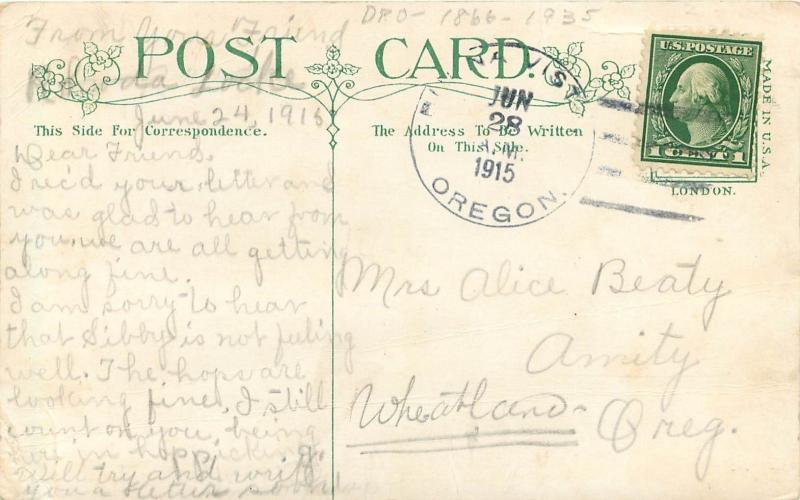 DPO - 1866 - 1935
From Your Friend
Luke
June 24, 1915
POST CARD.
This Side For Correspondence.
The Address To Be Written
On This Side.
U.S. POSTAGE
1 CENT 1
MADE IN U.S.A.
LONDON.
VISTA
JUN
28
A.M.
1915
OREGON.
Dear Friend.
I rec'd your letter and
was glad to hear from
you, we are all getting
along fine.
I am sorry to hear
that Sibby is not feeling
well. The hops are
looking fine, I still
count on you, being
in hop picking. I
will try and write
you a letter soon
Mrs Alice Beaty
Amity
Wheatland-
Oreg.